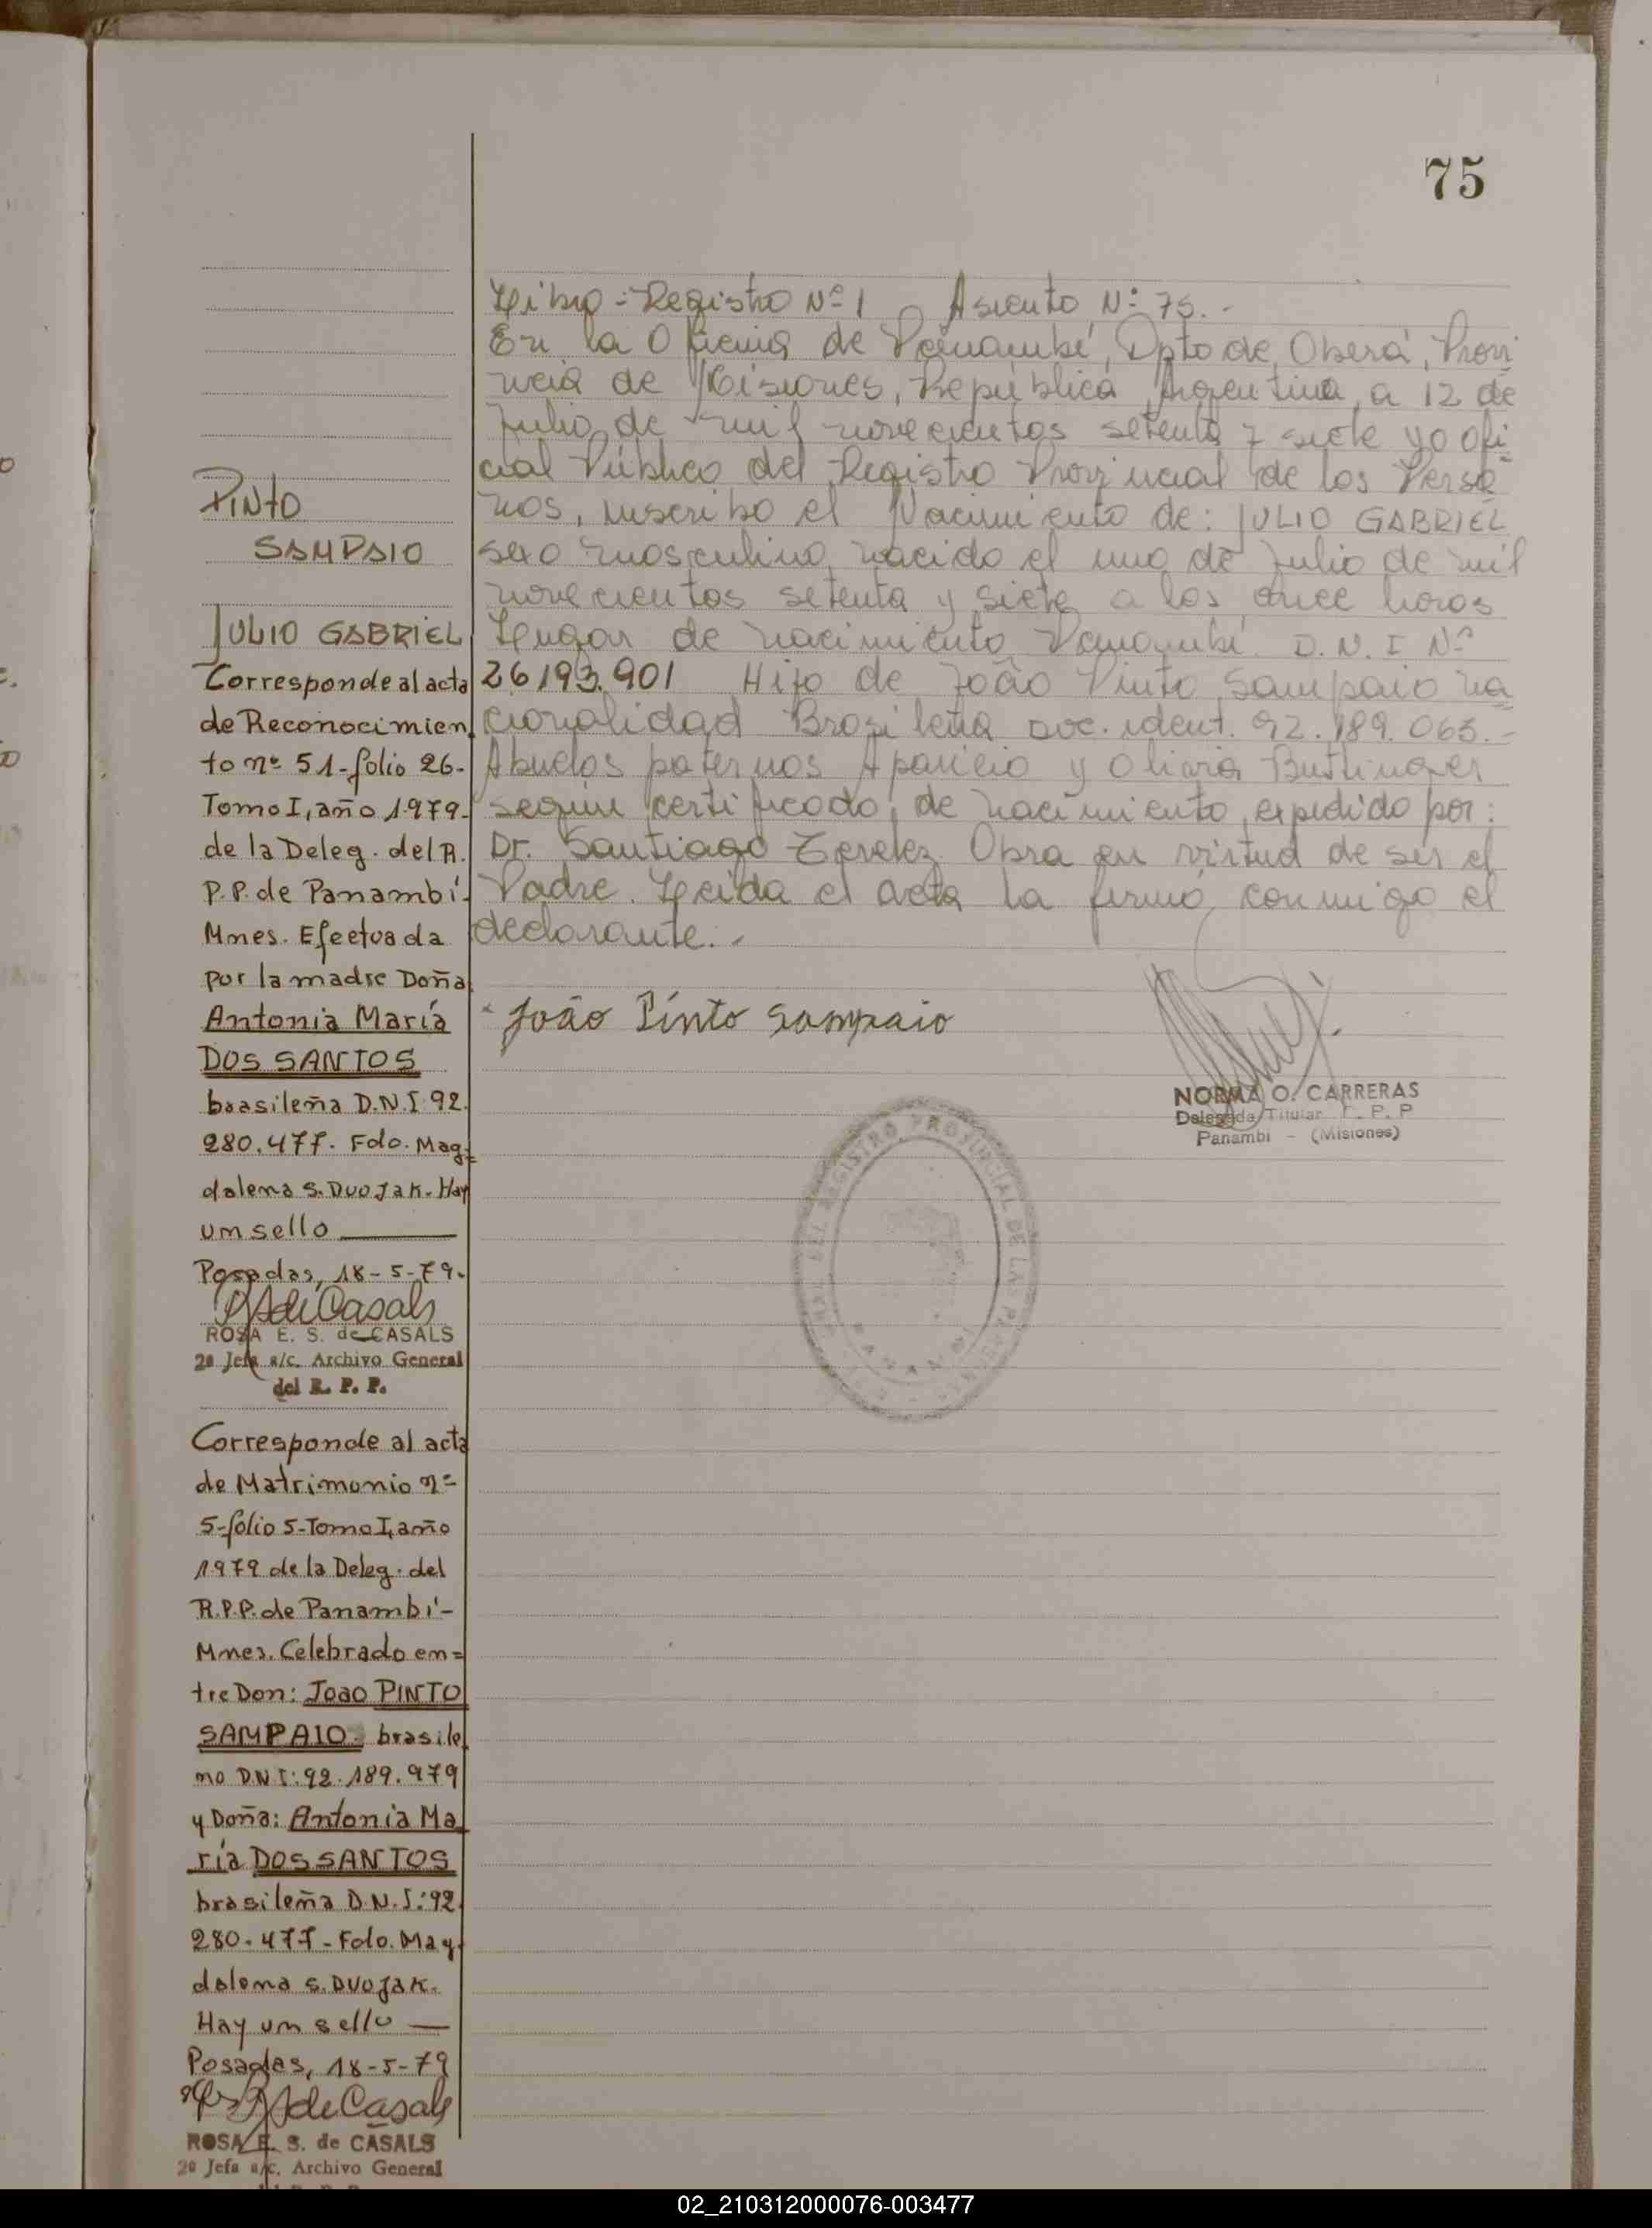 75
Libro - Registro Nº 1 Asiento Nº 75.-
En la Oficina de Panambí, Dpto de, Oberá, Provi
ncia de Misiones, República Argentina, a 12 de
Julio de mil novecientos setenta y siete yo ofi
cial Público del Registro Provincial de las Perso
nas, inscribo el Nacimiento de: JULIO GABRIEL
sexo masculino nacido el uno de Julio de mil
novecientos setenta y siete a las once horas
Lugar de nacimiento Panambí. D.N.I Nº
26193.901 Hijo de João Pinto Sampaio na
cionalidad Brasileña doc. ident. 92.189.063.-
Abuelos paternos Aparicio y Oliaria
según certificado de nacimiento, expedido por:
Dr. Santiago Obra en virtud de ser el
Padre. Leida el acta la firmó conmigo el
declarante.-
João Pinto Sampaio
NORMA O. CARRERAS
Delegada Titular R. P. P
Panambí - (Misiones)
DEL REGISTRO PROVINCIAL DE LAS PERSONAS
PANAMBI
PINTO
SAMPAIO
JULIO GABRIEL
Corresponde al acta
de Reconocimien
to nº 51-folio 26-
Tomo I, año 1979-
de la Deleg. del R.
P.P. de Panambí-
Mnes. Efectuada
por la madre Doña
Antonia María
DOS SANTOS
brasileña D.N.I: 92.
280.477. Fdo. Mag-
dalena S. Duojak. Hay
un sello
Posadas, 18-5-79.
RSdeCasals
ROSA E. S. de CASALS
2ª Jefa a/c. Archivo General
del R. P. P.
Corresponde al acta
de Matrimonio nº
5-folio 5-Tomo I, año
1979 de la Deleg. del
R.P.P. de Panambí-
Mnes. Celebrado en=
tre Don: Joao PINTO
SAMPAIO- brasile
no D.N.I: 92.189.979
y Doña: Antonia Ma
ría DOS SANTOS
brasileña D.N.I: 92.
280.477- Fdo. Mag-
dalena S. Duojak.
Hay un sello
Posadas, 18-5-79
RSdeCasals
ROSA E. S. de CASALS
2ª Jefa a/c. Archivo General
02_210312000076-003477